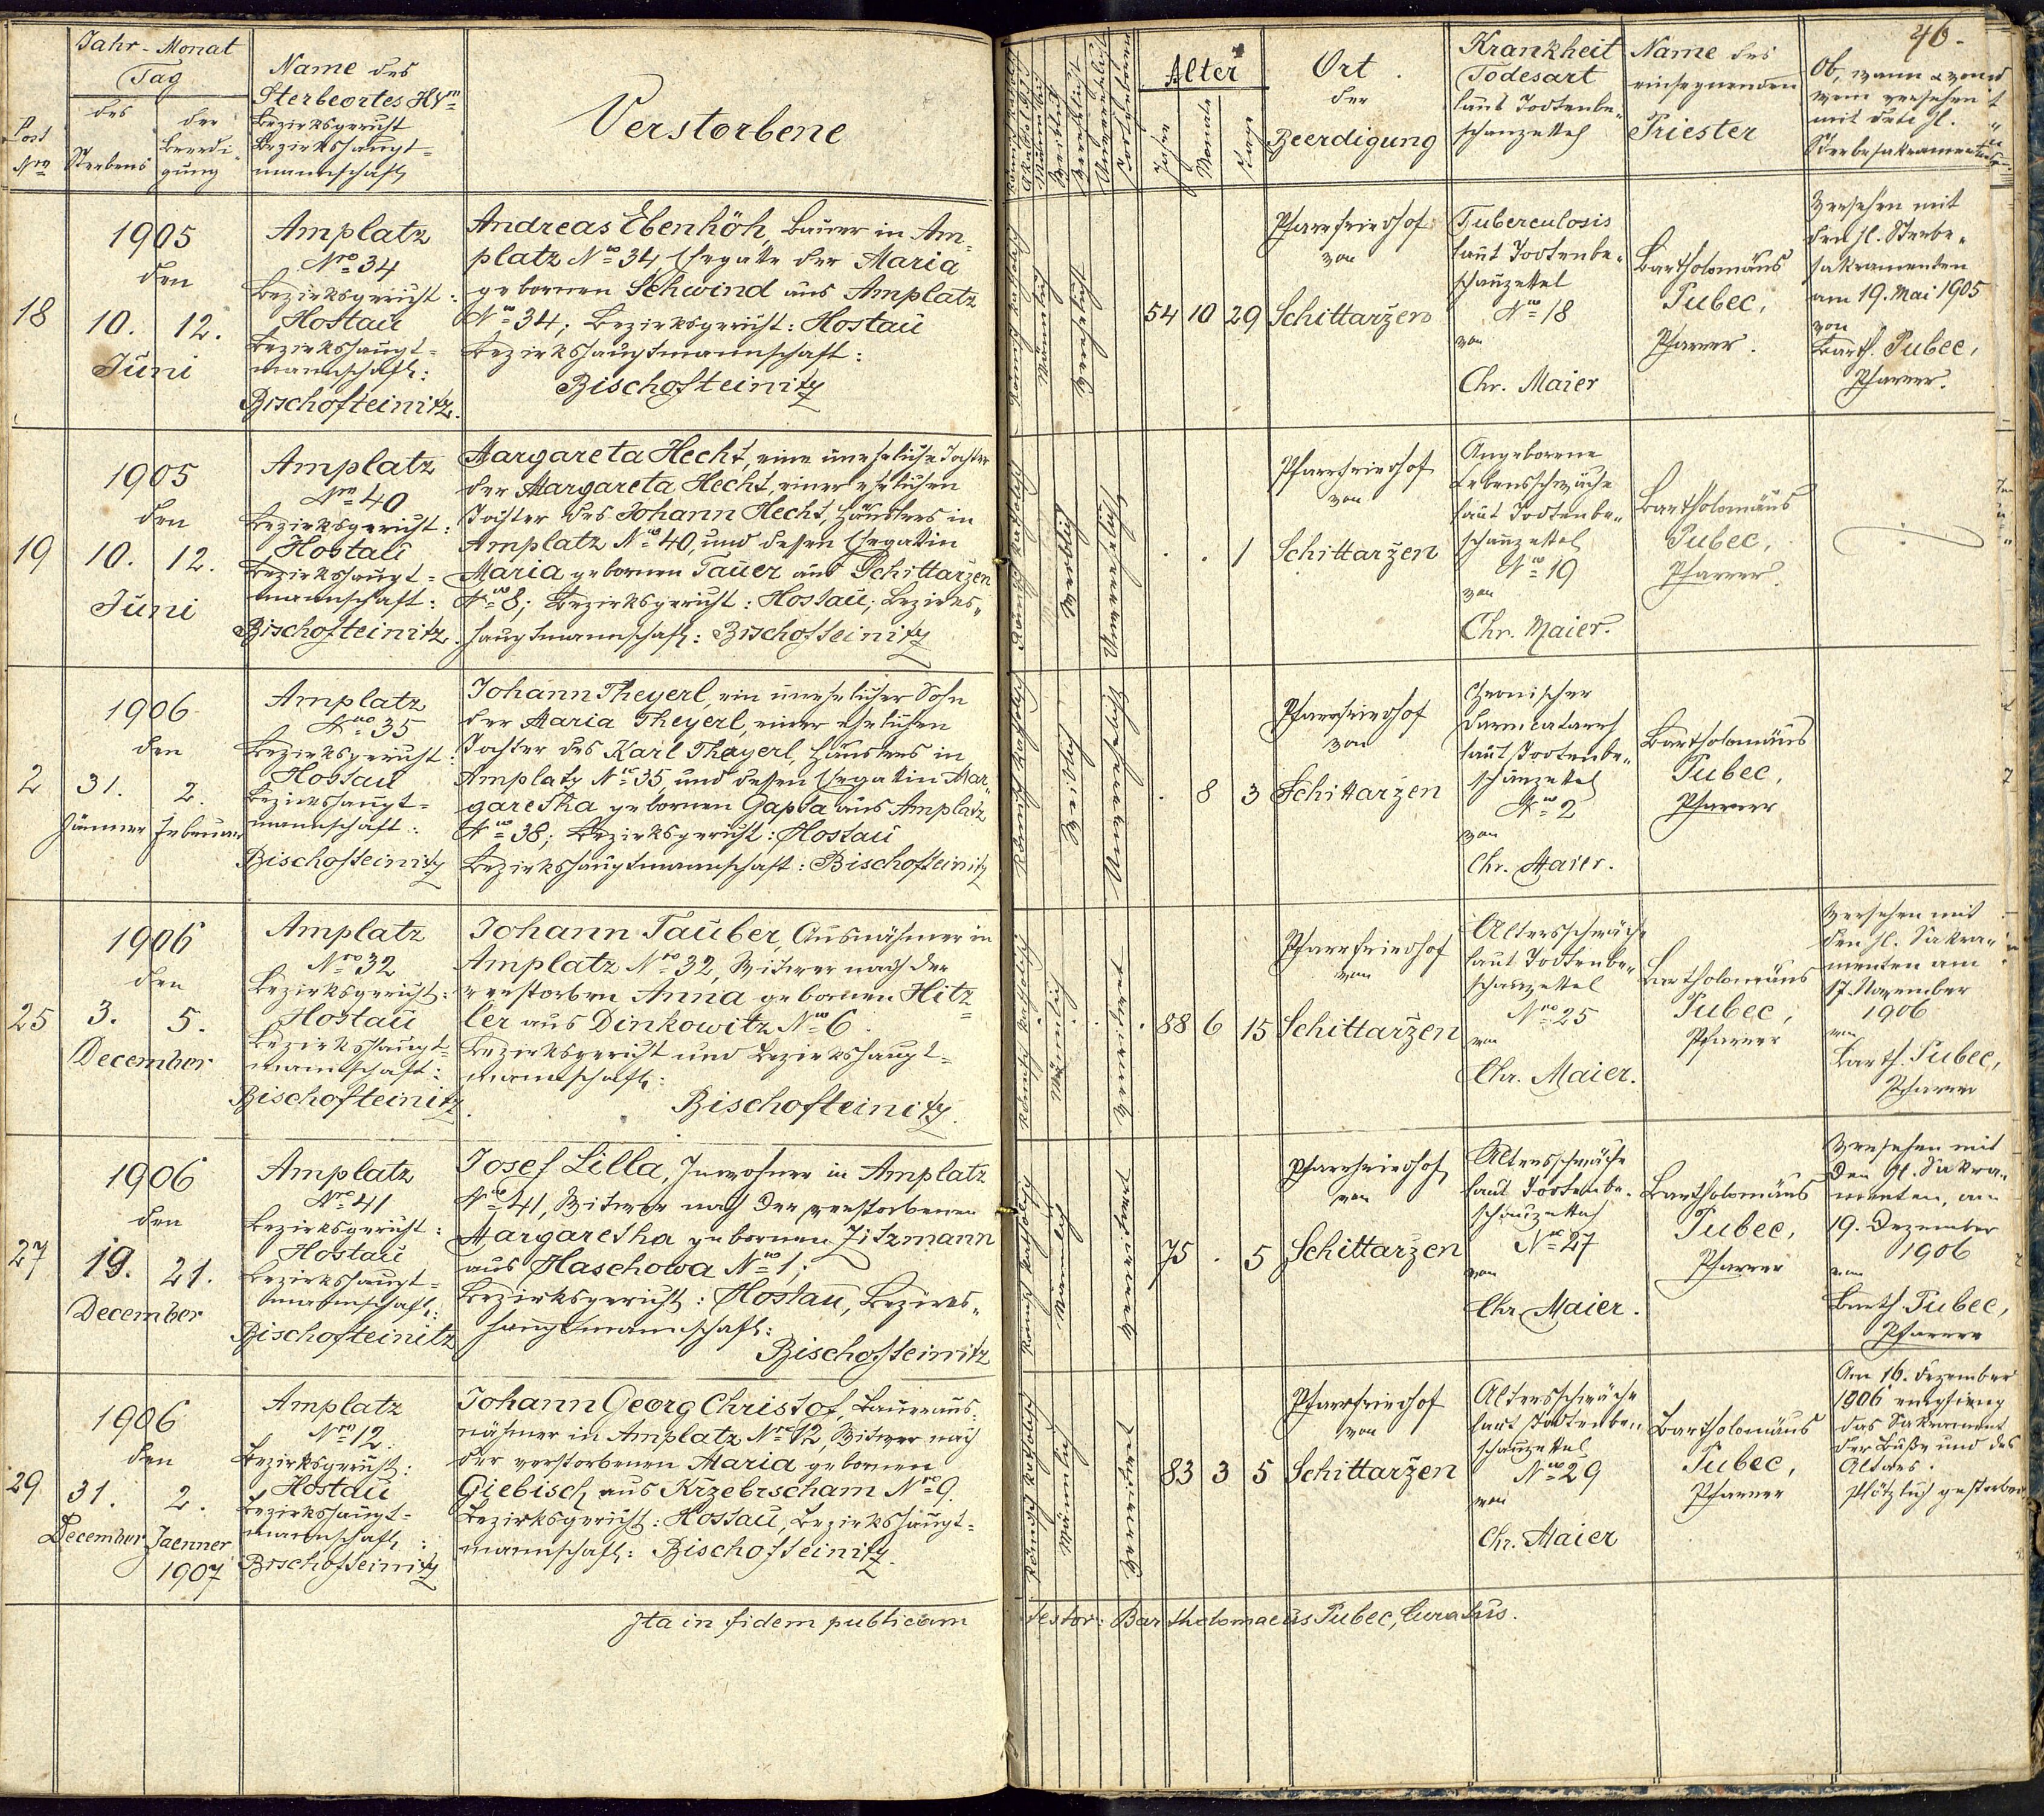 46.
Jahr - Monat
Tag
des
Sterbens
der
Beerdi-
gung
Post
Nro
Name des
Sterbeortes HNro
Bezirksgericht
Bezirkshaupt-
mannschaft
Verstorbene
Alter
Jahre
Monate
Tage
Ort
der
Beerdigung
Krankheit
Todesart
laut Todtenbe-
schauzettel
Name des
einsegnenden
Priester
Ob, wann u von
wem versehen
mit den hl.
Sterbesakramenten
18
1905
den
10. 12.
Juni
Amplatz
Nro 34
Bezirksgericht:
Hostau
Bezirkshaupt-
mannschaft:
Bischofteinitz.
Andreas Ebenhöh, Bauer in Am-
platz No 34 Ehegatte der Maria
gebornen Schwind aus Amplatz
No 34; Bezirksgericht: Hostau
Bezirkshauptmannschaft:
Bischofteinitz
Römisch katholisch
Männlich
Verehelicht
54 10 29
Pfarrfriedhof
von
Schittarzen
Tuberculosis
laut Todtenbe-
schauzettel
No 18
von
Chr. Maier
Bartholomäus
Pubec,
Pfarrer.
Versehen mit
den hl. Sterbe-
sakramenten
am 19. Mai 1905
von
Barth. Pubec,
Pfarrer.
19
1905
den
10. 12.
Juni
Amplatz
Nro 40
Bezirksgericht:
Hostau
Bezirkshaupt-
mannschaft:
Bischofteinitz.
Margareta Hecht, eine uneheliche Tochter
der Margareta Hecht, einer ehelichen
Tochter des Johann Hecht, Häuslers in
Amplatz No 40, und dessen Ehegattin
Maria gebornen Tauer aus Schittarzen
No 8; Bezirksgericht: Hostau; Bezirks-
hauptmannschaft: Bischofteinitz
Römisch katholisch
Weiblich
Unverehelicht
. . 1
Pfarrfriedhof
von
Schittarzen
Angeborene
Lebensschwäche
laut Todtenbe-
schauzettel
No 19
von
Chr. Maier.
Bartholomäus
Pubec,
Pfarrer.
2
1906
den
31. 2.
Jänner Februar
Amplatz
No 35
Bezirksgericht:
Hostau
Bezirkshaupt-
mannschaft:
Bischofteinitz
Johann Theyerl, ein unehelicher Sohn
der Maria Theyerl, einer ehelichen
Tochter des Karl Theyerl, Häuslers in
Amplatz No 35, und dessen Ehegattin Mar-
garetha gebornen Gapta aus Amplatz
No 38; Bezirksgericht: Hostau
Bezirkshauptmannschaft: Bischofteinitz
Römisch katholisch
Weiblich
Unverehelicht
. 8 3
Pfarrfriedhof
von
Schittarzen
Chronischer
Darmcatarrh
laut Todtenbe-
schauzettel
No 2
von
Chr. Maier.
Bartholomäus
Pubec,
Pfarrer
25
1906
den
3. 5.
December
Amplatz
Nro 32
Bezirksgericht:
Hostau
Bezirkshaupt-
mannschaft:
Bischofteinitz.
Johann Tauber, Ausnähmer in
Amplatz Nro 32, Witwer nach der
verstorben Anna gebornen Hitz-
ler aus Dinkowitz No 6.
Bezirksgericht und Bezirkshaupt-
mannschaft:
Bischofteinitz.
Römisch katholisch
Männlich
Verwitwet
88 6 15
Pfarrfriedhof
von
Schittarzen
Altersschwäche
laut Todtenbe-
schauzettel
Nro 25
von
Chr. Maier.
Bartholomäus
Pubec,
Pfarrer
Versehen mit
den hl. Sakra-
menten am
17. November
1906
von
Barth. Pubec,
Pfarrer
27
1906
den
19. 21.
December
Amplatz
Nro 41
Bezirksgericht:
Hostau
Bezirkshaupt-
mannschaft:
Bischofteinitz
Josef Lilla, Inwohner in Amplatz
No 41, Witwer nach der verstorbenen
Margaretha gebornen Zitzmann
aus Haschowa No 1;
Bezirksgericht: Hostau, Bezirks-
hauptmannschaft:
Bischofteinitz
Römisch katholisch
Männlich
Verwitwet
75 . 5
Pfarrfriedhof
von
Schittarzen
Altersschwäche
laut Todtenbe-
schauzettel
No 27
von
Chr. Maier.
Bartholomäus
Pubec,
Pfarrer
Versehen mit
den hl. Sakra-
menten, am
19. Dezember
1906
von
Barth. Pubec,
Pfarrer
29
1906
den
31. 2.
December Jaenner
1907
Amplatz
Nro 12.
Bezirksgericht:
Hostau
Bezirkshaupt-
mannschaft:
Bischofteinitz
Johann Georg Christof, Baueraus-
nähmer in Amplatz Nro 12, Witwer nach
der verstorbenen Maria gebornen
Giebisch aus Krzebrscham Nro 9.
Bezirksgericht: Hostau, Bezirkshaupt-
mannschaft: Bischofteinitz.
Römisch katholisch
Männlich
Verwitwet
83 3 5
Pfarrfriedhof
von
Schittarzen
Altersschwäche
laut Todtenbe-
schauzettel
No 29
von
Chr. Maier
Bartholomäus
Pubec,
Pfarrer
Am 16. Dezember
1906 empfieng
das Sakrament
der Buße und des
Altares.
Plötzlich gestorben
Ita in fidem publicam testor: Bartholomaeus Pubec, Curatus.